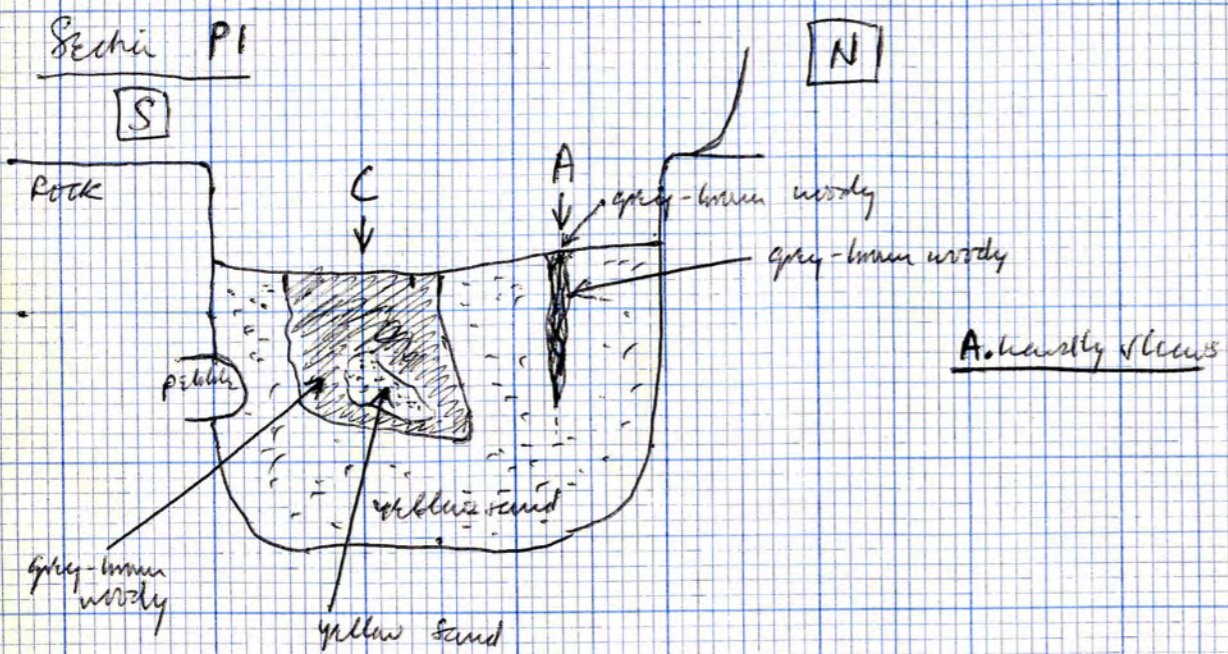 Section P1
S
N
ROCK
C
A
grey-brown woody
grey-brown woody
pebble
A. hardly shows
yellow sand
grey-brown
woody
yellow sand